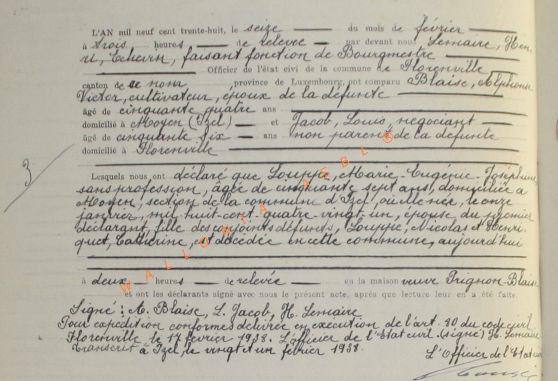 L'AN mil neuf cent trente-huit, le seize du mois de février
à trois heures de relevée par devant nous Lemaire, Hen-
ri, Echevin, faisant fonction de Bourgmestre
Officier de l'état civil de la commune de Florenville
canton de ce nom, province de Luxembourg, ont comparu Blaise, Alphonse
Victor, cultivateur, époux de la défunte
âgé de cinquante quatre ans
domicilié à Moyen (Izel) et Jacob, Louis, négociant
âgé de cinquante six ans non parent de la défunte
domicilié à Florenville
3
Lesquels nous ont déclaré que Louppe, Marie-Eugénie-Joséphine
sans profession, âgée de cinquante sept ans, domiciliée à
Moyen, section de la commune d'Izel, où elle née, le onze
janvier, mil huit-cent-quatre vingt-un, épouse du premier
déclarant, fille des conjoints défunts, Louppe, Nicolas et Henri-
quet, Catherine, est décédée en cette commune, aujourd'hui
à deux heures de relevée en la maison veuve Frignon Blaise
et ont les déclarants signé avec nous le présent acte, après que lecture leur en a été faite.
Signé: A. Blaise, L. Jacob, H. Lemaire
Pour expédition conforme délivrée en exécution de l'art. 80 du code civil
Florenville le 17 février 1938. L'Officier de l'Etat civil (signé) H. Lemaire
Transcrit à Izel, le vingt et un février 1938.
L'Officier de l'Etat civil
WALLONIA ASBL ©